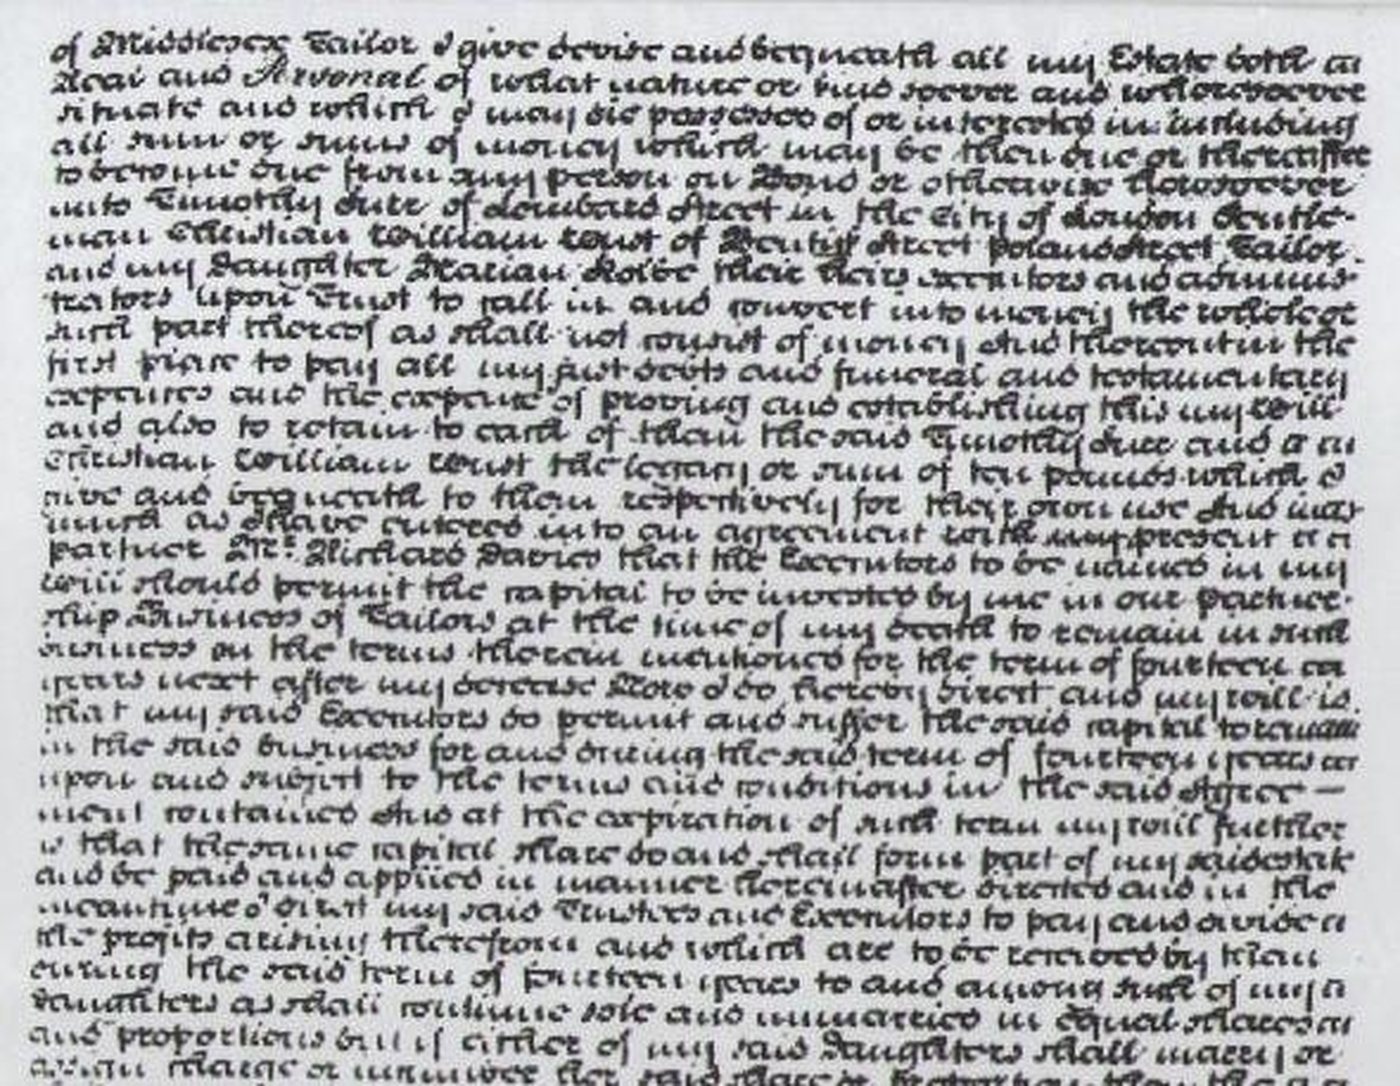 of Middlesex Tailor I give devise and bequeath all my Estate both
Real and Personal of what nature or kind soever and wheresoever
situate and which I may die possessed of or interested in including
all sum or sums of money which may be then due or thereafter
to become due from any person on Bond or otherwise howsoever
unto Timothy of Lombard Street in the City of London Gentle-
man Christian William of Street Poland Street Tailor
and my Daughter Marian their heirs executors and adminis-
trators upon Trust to call in and convert into money the whole or
such part thereof as shall not consist of money And thereout in the
first place to pay all my just debts and funeral and testamentary
expences and the expence of proving and establishing this my Will
and also to retain to each of them the said Timothy and
Christian William the legacy or sum of ten pounds which I
give and bequeath to them respectively for their own use And
as I have entered into an agreement with my present
partner Mr. Richard Davies that the Executors to be named in my
Will should permit the capital to be invested by me in our Partner-
ship Business of Tailors at the time of my death to remain in such
business on the terms therein mentioned for the term of fourteen
years next after my decease Now I do hereby direct and my will is
that my said Executors do permit and suffer the said capital to remain
in the said business for and during the said term of fourteen years
upon and subject to the terms and conditions in the said Agree—
ment contained And at the expiration of such term my will further
is that the same capital share do and shall form part of my said estate
and be paid and applied in manner hereinafter directed and in the
meantime I direct my said Trustees and Executors to pay and divide
the profits arising therefrom and which are to be received by them
during the said term of fourteen years to and among such of my
daughters as shall continue sole and unmarried in equal shares
and proportions but if either of my said Daughters shall marry or
assign charge or her said share or then the